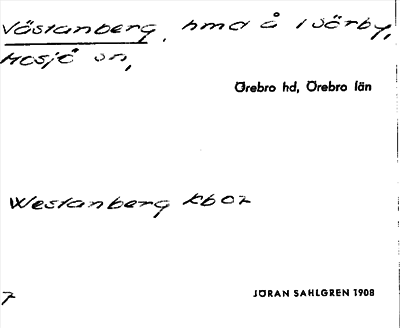 Västanberg, hmd å 1 Sörby,
Mosjö sn,
Örebro hd, Örebro län
Westanberg kb 07
7
JÖRAN SAHLGREN 1908